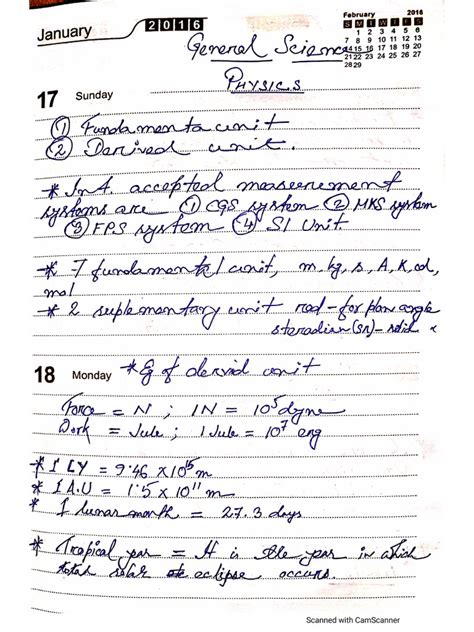 January 2016
February 2016
S M T W T F S
1 2 3 4 5 6
7 8 9 10 11 12 13
14 15 16 17 18 19 20
21 22 23 24 25 26 27
28 29
General Science
PHYSICS
17 Sunday
① Fundamenta unit
② Derived unit.
* Int. accepted measurement
systems are ① CGS system ② MKS system
③ FPS system ④ SI Unit.
* 7 fundamental unit, m, kg, s, A, K, cd,
mol
* 2 suplementary unit rad - for plan angle
steradian (sr) - solid ∝
18 Monday * Eg of dervid unit
Force = N ; 1N = 10⁵ dyne
Work = Jule ; 1 Jule = 10⁷ erg
* 1 LY = 9.46 × 10¹⁵ m
* 1 A.U = 1.5 × 10¹¹ m
* 1 lunar month = 27.3 days
* Tropical year = It is the year in which
total solar eclipse occurs.
Scanned with CamScanner